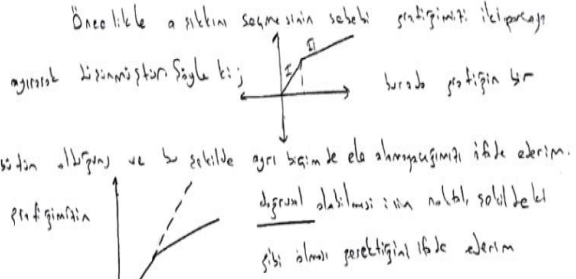 Öncelikle a şıkkını seçmesinin sebebi grafiğimizi iki parçaya
ayırarak düşünmüştür. Şöyle ki;
I II
burada grafiğin bir
bütün olduğunu ve bu şekilde ayrı biçimde ele alamayacağımızı ifade ederim.
grafiğimizin
doğrusal olabilmesi için noktalı şekildeki
gibi olması gerektiğini ifade ederim